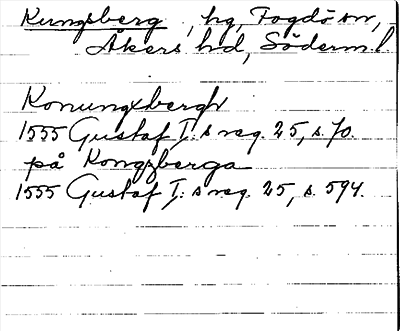 Kungsberg, hg, Fogdö sn,
Åkers hd, Söderm. l
Konungxbergh
1555 Gustaf I:s reg. 25, s. 70.
på Kongzberga
1555 Gustaf I:s reg. 25, s. 594.